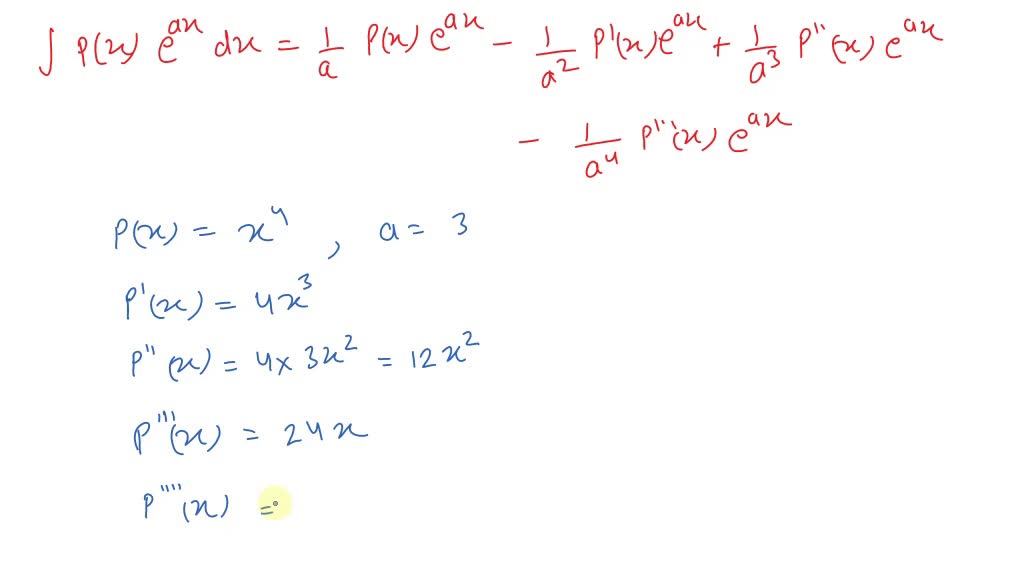 ∫ P(x) e^{ax} dx = \frac{1}{a} P(x) e^{ax} - \frac{1}{a^2} P'(x) e^{ax} + \frac{1}{a^3} P''(x) e^{ax}
- \frac{1}{a^4} P'''(x) e^{ax}
P(x) = x^4 , a = 3
P'(x) = 4x^3
P''(x) = 4 × 3x^2 = 12x^2
P'''(x) = 24x
P''''(x) =